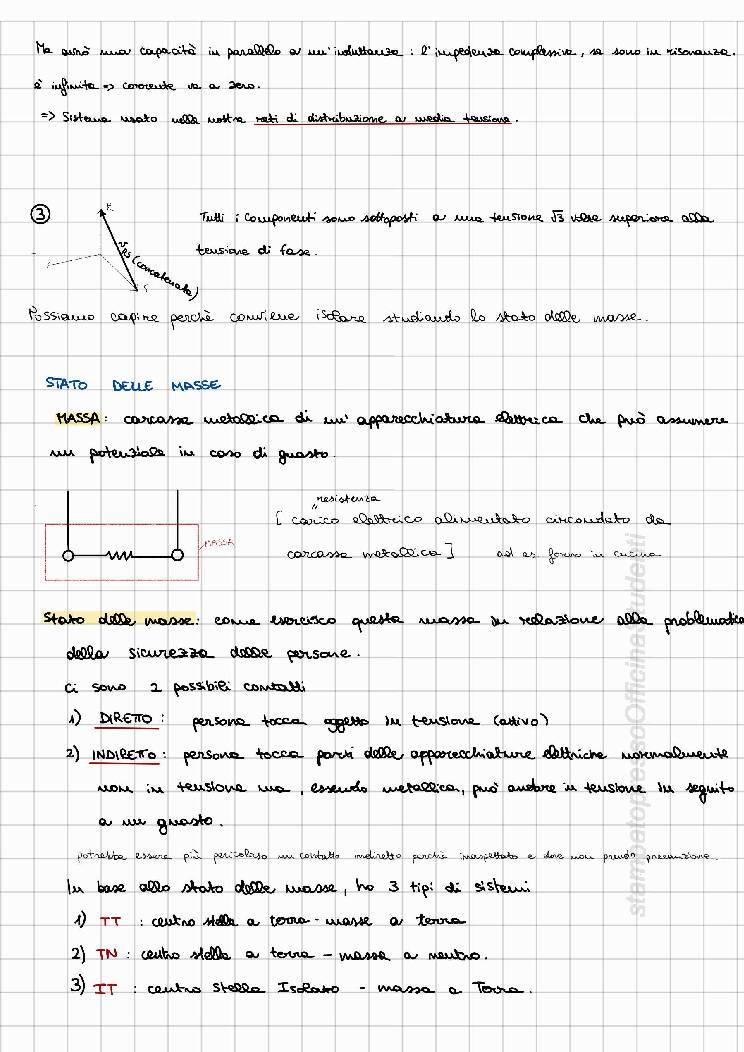 Ma avrò una capacità in parallelo a un'induttanza : l'impedenza complessiva, se sono in risonanza.
è infinita => corrente va a zero.
=> Sistema usato nelle nostre reti di distribuzione a media tensione.
③
R
Tutti i componenti sono sottoposti a una tensione √3 volte superiore alla
tensione di fase.
(concatenata)
S
Possiamo capire perchè conviene isolare studiando lo stato delle masse.
STATO DELLE MASSE
MASSA: carcassa metallica di un'apparecchiatura elettrica che può assumere
un potenziale in caso di guasto.
resistenza
[ carico elettrico alimentato circondato da
MASSA
carcassa metallica ] ad es. forno in cucina
Stato delle masse: come esercisco questa massa in relazione alla problematica
della sicurezza delle persone.
Ci sono 2 possibili contatti
1) DIRETTO : persona tocca oggetto in tensione (attivo)
2) INDIRETTO : persona tocca parti delle apparecchiature elettriche normalmente
non in tensione ma, essendo metallica, può andare in tensione in seguito
a un guasto.
potrebbe essere più pericoloso un contatto indiretto perchè inaspettato e dove non prendo precauzione.
In base allo stato delle masse, ho 3 tipi di sistemi
1) TT : centro stella a terra - masse a terra
2) TN : centro stella a terra - massa a neutro.
3) IT : centro stella Isolato - massa a Terra.
stampatopressoOfficinastudenti